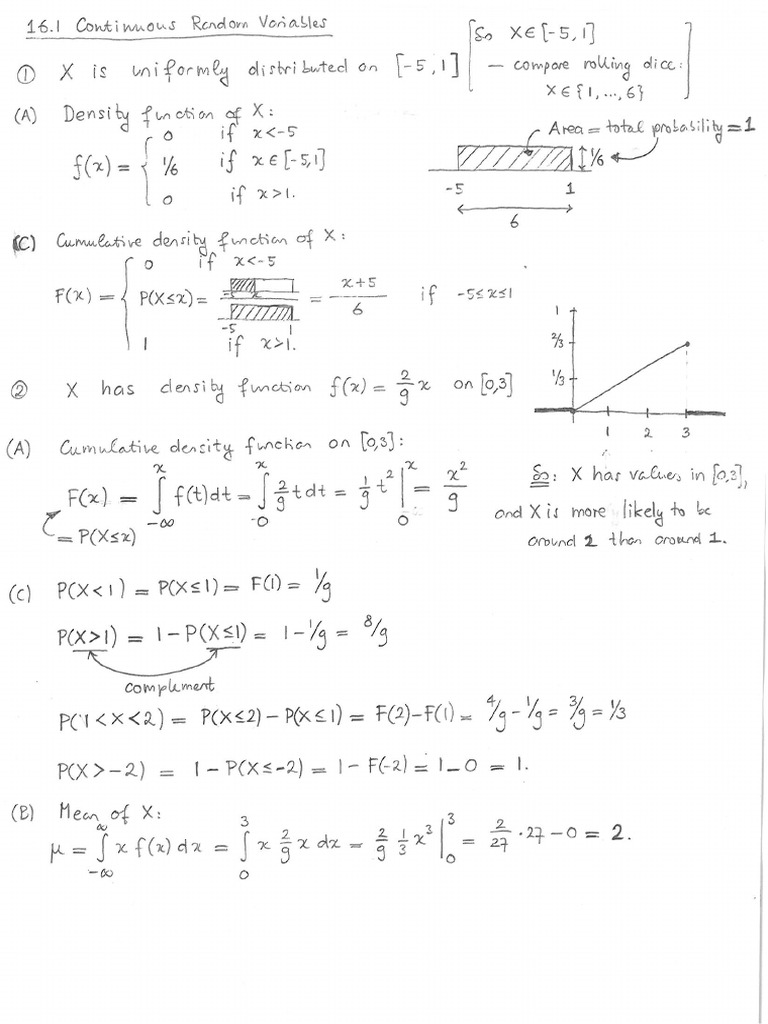 16.1 Continuous Random Variables
① X is uniformly distributed on [-5,1] [So X∈[-5,1]
— compare rolling dice:
X∈{1,...,6}]
(A) Density function of X:
f(x) = { 0 if x<-5
1/6 if x∈[-5,1]
0 if x>1.
Area = total probability = 1
1/6
-5 1
6
(C) Cumulative density function of X:
F(x) = { 0 if x<-5
P(X≤x) = -5 x / -5 1 = (x+5)/6 if -5≤x≤1
1 if x>1.
② X has density function f(x) = 2/9 x on [0,3]
1
2/3
1/3
1 2 3
(A) Cumulative density function on [0,3]:
F(x) = ∫_{-∞}^{x} f(t)dt = ∫_{0}^{x} 2/9 t dt = 1/9 t² |_{0}^{x} = x²/9
= P(X≤x)
So: X has values in [0,3],
and X is more likely to be
around 2 than around 1.
(C) P(X<1) = P(X≤1) = F(1) = 1/9
P(X>1) = 1-P(X≤1) = 1-1/9 = 8/9
complement
P(1<X<2) = P(X≤2)-P(X≤1) = F(2)-F(1) = 4/9-1/9 = 3/9 = 1/3
P(X>-2) = 1-P(X≤-2) = 1-F(-2) = 1-0 = 1.
(B) Mean of X:
μ = ∫_{-∞}^{∞} x f(x) dx = ∫_{0}^{3} x 2/9 x dx = 2/9 1/3 x³ |_{0}^{3} = 2/27 · 27 - 0 = 2.